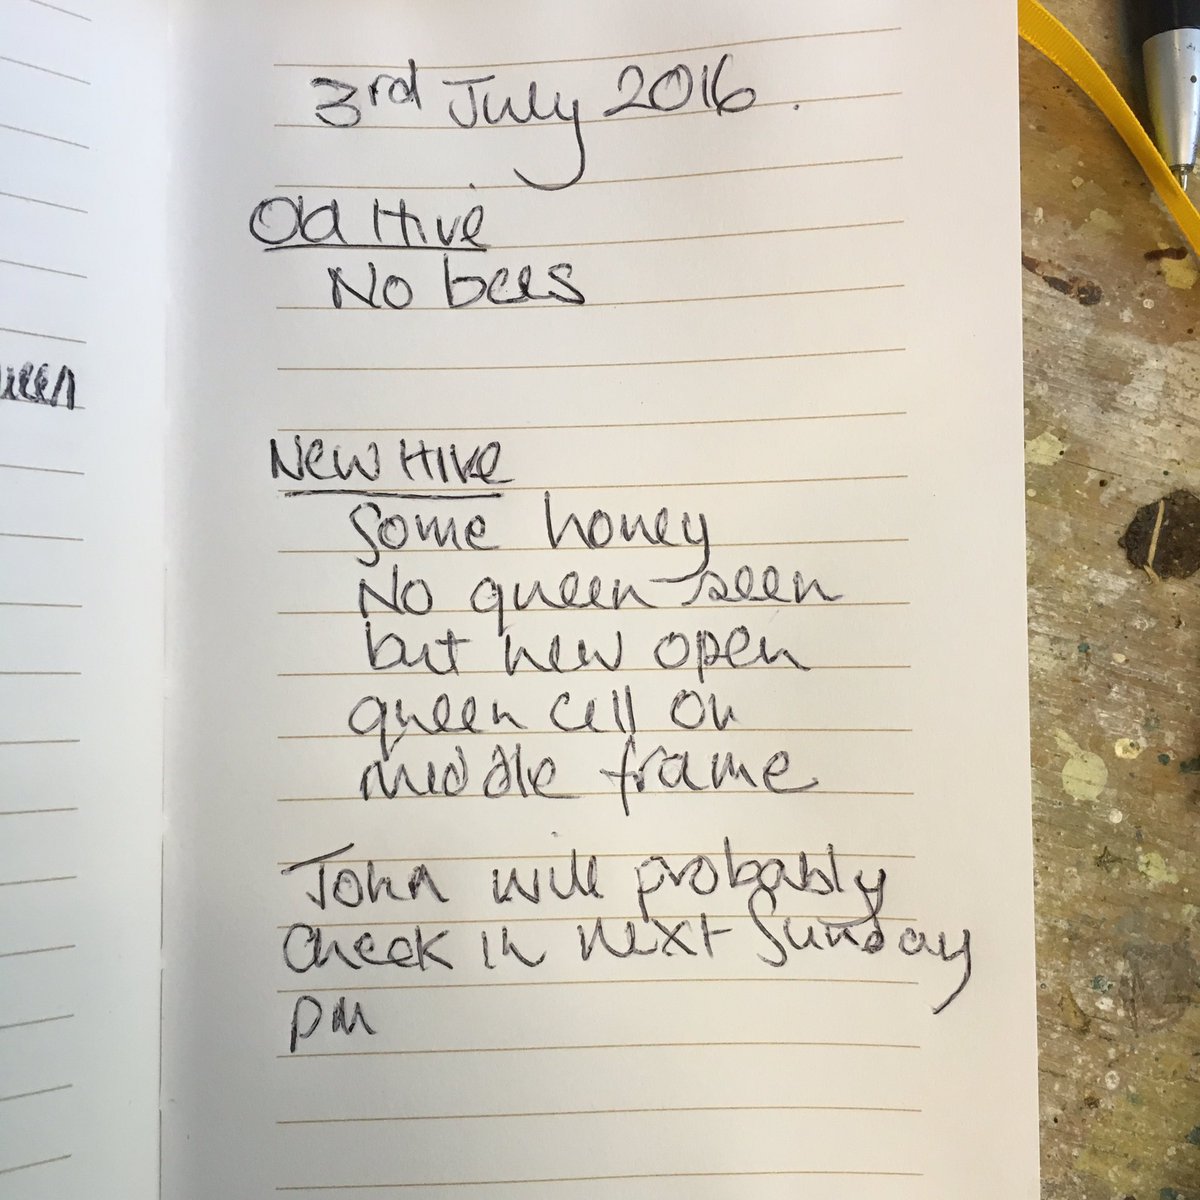 3rd July 2016.
Old Hive
No bees
New Hive
Some honey
No queen seen
but new open
queen cell on
middle frame
John will probably
check in next Sunday
pm